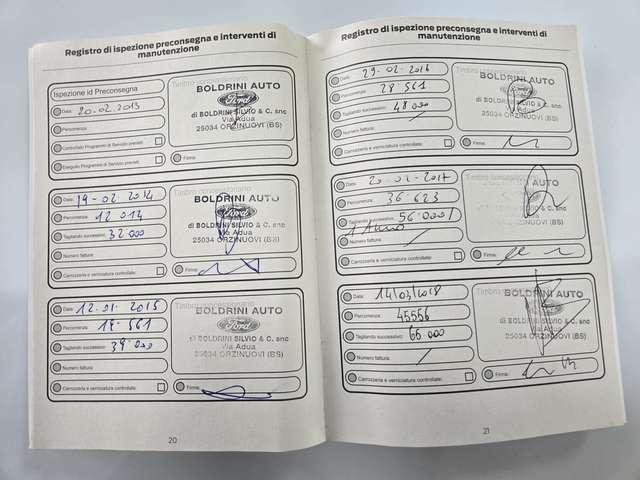 Registro di ispezione preconsegna e interventi di
manutenzione
Ispezione id Preconsegna
Data: 20-02-2013
Percorrenza:
Controllato Programmi di Servizio previsti:
Eseguito Programmi di Servizio previsti:
Timbro concessionario
BOLDRINI AUTO
Ford
di BOLDRINI SILVIO & C. snc
Via Adua
25034 ORZINUOVI (BS)
Firma:
Data: 19-02-2014
Percorrenza: 12 014
Tagliando successivo: 32 000
Numero fattura:
Carrozzeria e verniciatura controllate:
Timbro concessionario
BOLDRINI AUTO
Ford
di BOLDRINI SILVIO & C. snc
Via Adua
25034 ORZINUOVI (BS)
Firma:
Data: 12-01-2015
Percorrenza: 18-561
Tagliando successivo: 38-000
Numero fattura:
Carrozzeria e verniciatura controllate:
Timbro concessionario
BOLDRINI AUTO
Ford
di BOLDRINI SILVIO & C. snc
Via Adua
25034 ORZINUOVI (BS)
Firma:
20
Registro di ispezione preconsegna e interventi di
manutenzione
Data: 29-02-2016
Percorrenza: 28-561
Tagliando successivo: 48 000
Numero fattura:
Carrozzeria e verniciatura controllate:
Timbro concessionario
BOLDRINI AUTO
Ford
di BOLDRINI SILVIO & C. snc
Via Adua
25034 ORZINUOVI (BS)
Firma:
Data: 20-02-2017
Percorrenza: 36-623
Tagliando successivo: 56-000/
1 Anno
Numero fattura:
Carrozzeria e verniciatura controllate:
Timbro concessionario
Firma:
Data: 14/03/2018
Percorrenza: 45556
Tagliando successivo: 66 000
Numero fattura:
Carrozzeria e verniciatura controllate:
Timbro concessionario
BOLDRINI AUTO
di BOLDRINI SILVIO & C. snc
Via Adua
25034 ORZINUOVI (BS)
Firma:
21